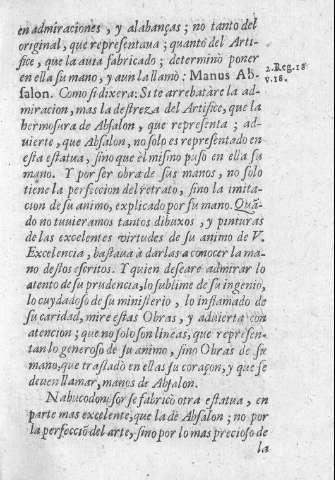 en admiraciones, y alabanças; no tanto del
original, que representaua; quanto del Arti-
fice, que la auia fabricado; determinò poner
en ella su mano, y aun la llamò: Manus Ab-
salon. Como si dixera: Si te arrebatàre la ad-
miracion, mas la destreza del Artifice, que la
hermosura de Absalon, que representa; ad-
uierte, que Absalon, no solo es representado en
esta estatua, sino que èl mismo puso en ella su
mano. Y por ser obra de sus manos, no solo
tiene la perfeccion del retrato, sino la imita-
cion de su animo, explicado por su mano. Quã-
do no tuuieramos tantos dibuxos, y pinturas
de las excelentes virtudes de su animo de V.
Excelencia, bastaua à darlas a conocer la ma-
no destos escritos. Y quien deseare admirar lo
atento de su prudencia, lo sublime de su ingenio,
lo cuydadoso de su ministerio, lo inflamado de
su caridad, mire estas Obras, y aduierta con
atencion; que no solo son lineas, que represen-
tan lo generoso de su animo, sino Obras de su
mano, que traslado en ellas su coraçon, y que se
deuen llamar, manos de Absalon.
Nabucodonosor se fabricò otra estatua, en
parte mas excelente, que la de Absalon; no por
la perfecciõ del arte, sino por lo mas precioso de
la
2. Reg. 18
v. 18.